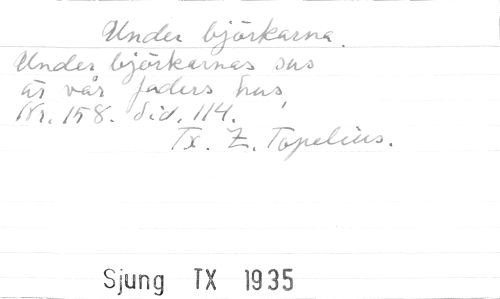 Under björkarna.
Under björkarnas sus
är vår faders hus,
Nr. 158. Sid. 114.
Tx. Z. Topelius.
Sjung TX 1935